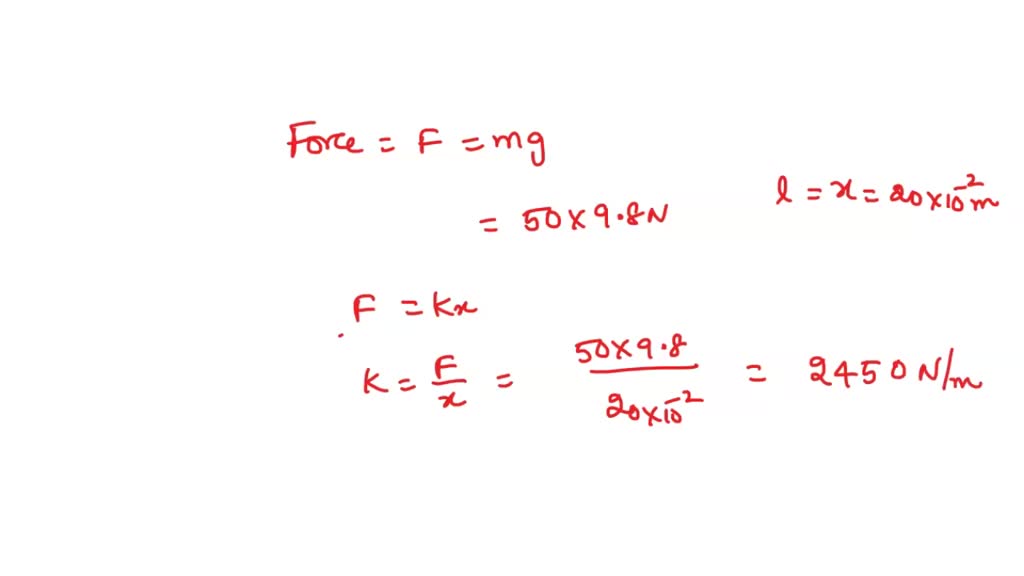 Force = F = mg
= 50 × 9.8 N
l = x = 20 × 10⁻² m
F = Kx
K = F/x = 50 × 9.8 / 20 × 10⁻² = 2450 N/m